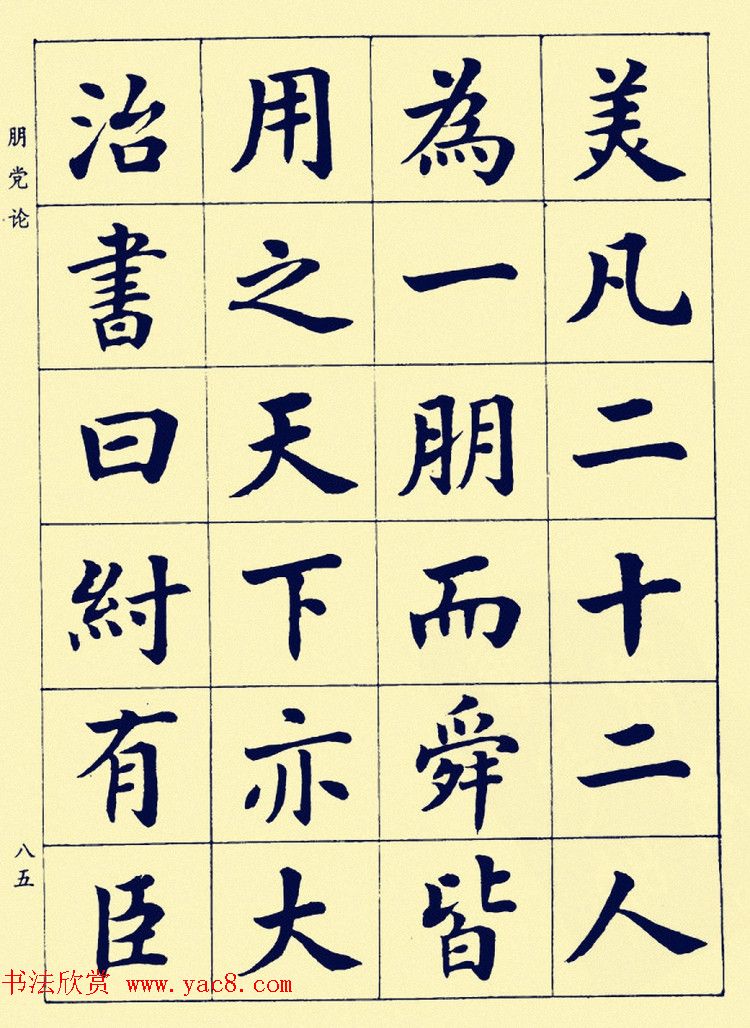 美凡二十二人
為一朋而舜皆
用之天下亦大
治書曰紂有臣
朋党论
八五
书法欣赏 www.yac8.com